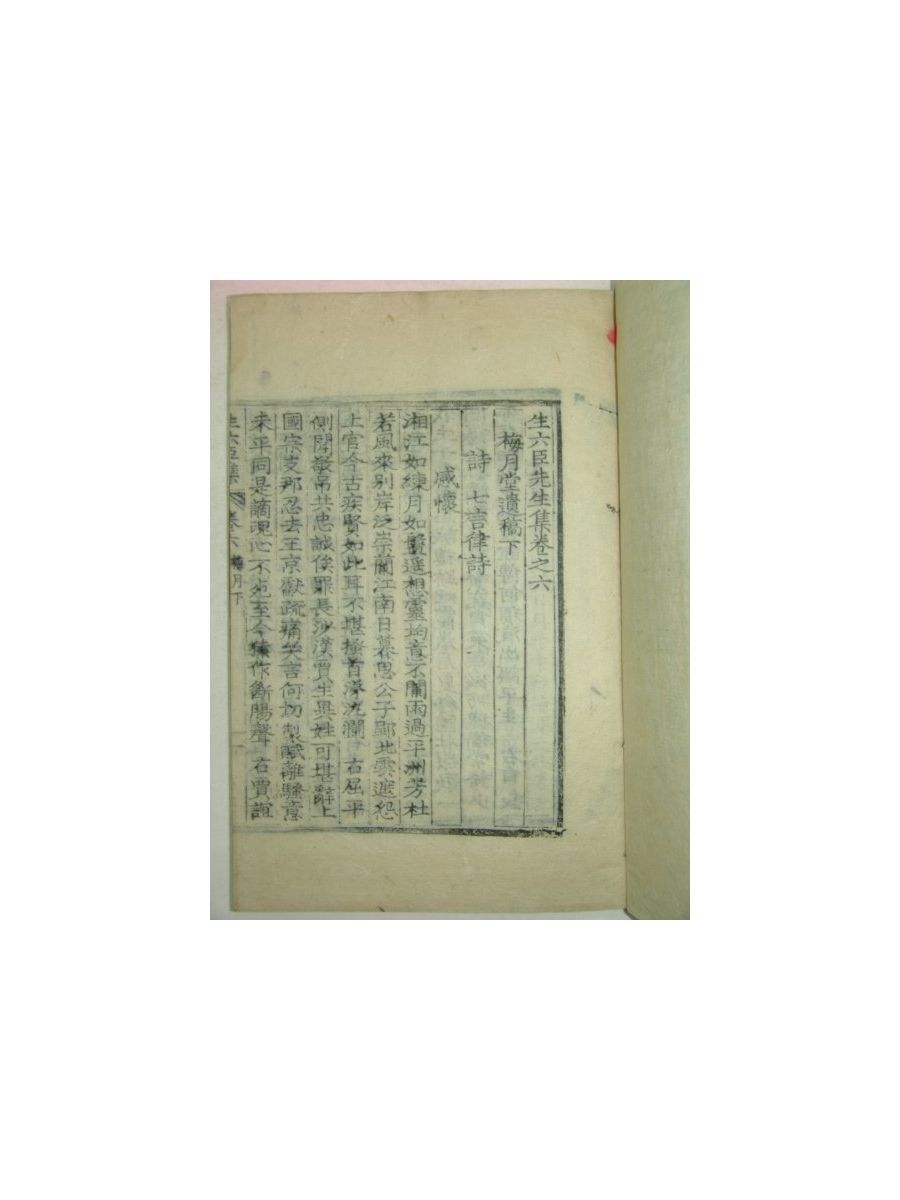 生六臣先生集卷之六
梅月堂遺稿下
詩 七言律詩
感懷
湘江如練月如盤遥想靈均意不闌雨過平洲芳杜
若風來別岸泛崇蘭江南日暮思公子鄢北雲遮怨
上官今古疾賢如此耳不堪搔首淚汍瀾 右屈平
側聞嚴吊共忠誠俟罪長沙漢賈生異姓可堪辭上
國宗支那忍去王京獻疏痛哭言何切製賦離騷意
未平同是謫魂心不死至今猿作斷腸聲 右賈誼
生六臣集 卷六 梅月下